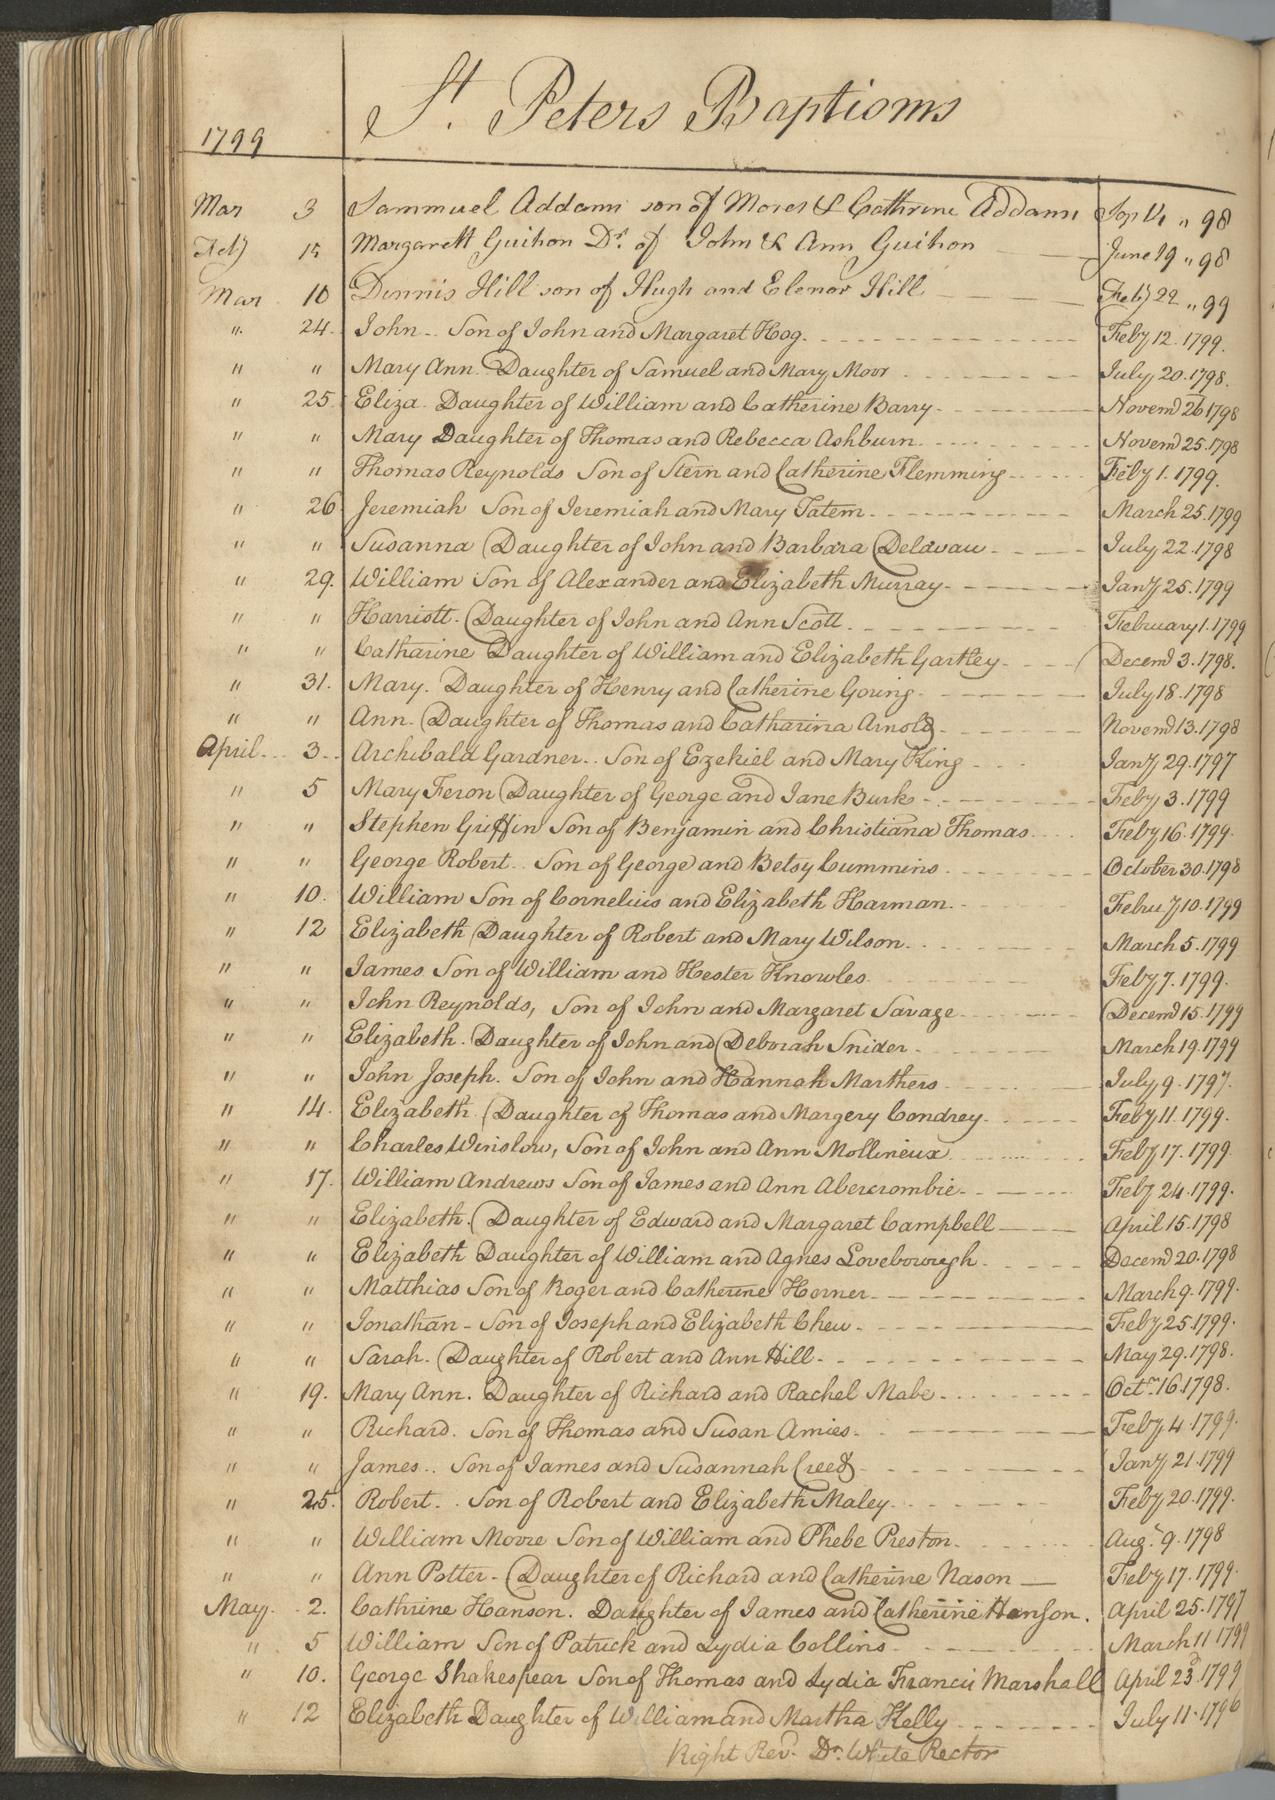 1799 St. Peters Baptisms
Mar 3 Sammuel Addams son of Moses & Cathrine Addams Sep 14 " 98
Feby 15 Margarett Guihon Dr. of John & Ann Guihon June 19 " 98
Mar 10 Dennis Hill son of Hugh and Elenor Hill Feby 22 " 99
" 24. John .. Son of John and Margaret Hog. Feby 12. 1799.
" " Mary Ann. Daughter of Samuel and Mary Moor July 20. 1798.
" 25. Eliza. Daughter of William and Catherine Barry. Novemd 26 1798
" " Mary Daughter of Thomas and Rebecca Ashburn. Novemd 25. 1798
" " Thomas Reynolds Son of Stern and Catherine Flemming Feby 1. 1799.
" 26 Jeremiah Son of Jeremiah and Mary Tatem. March 25. 1799
" " Susanna Daughter of John and Barbara Delavau July 22. 1798
" 29. William Son of Alexander and Elizabeth Murray. Jany 25. 1799
" " Harriott. Daughter of John and Ann Scott. February 1. 1799
" " Catharine Daughter of William and Elizabeth Gartley. Decemd 3. 1798.
" 31. Mary. Daughter of Henry and Catherine Goring. July 18. 1798
" " Ann. Daughter of Thomas and Catharina Arnold. Novemd 13. 1798
April... 3.. Archibald Gardner.. Son of Ezekiel and Mary King Jany 29. 1797
" 5 Mary Feron Daughter of George and Jane Burk Feby 3. 1799
" " Stephen Griffin Son of Benjamin and Christiana Thomas. Feby 16. 1799.
" " George Robert. Son of George and Betsy Cummins. October 30. 1798
" 10. William Son of Cornelius and Elizabeth Harman. Febru'y 10. 1799
" 12 Elizabeth Daughter of Robert and Mary Wilson. March 5. 1799
" " James Son of William and Hester Knowles. Feby 7. 1799.
" " John Reynolds, Son of John and Margaret Savage Decemd 15. 1799
" " Elizabeth. Daughter of John and Deborah Snider. March 19. 1799
" " John Joseph. Son of John and Hannah Marthers July 9. 1797.
" 14. Elizabeth. Daughter of Thomas and Margery Condrey. Feby 11. 1799.
" " Charles Winslow, Son of John and Ann Mollineux. Feby 17. 1799
" 17. William Andrews Son of James and Ann Abercrombie. Feby 24. 1799.
" " Elizabeth. Daughter of Edward and Margaret Campbell April 15. 1798
" " Elizabeth Daughter of William and Agnes Loveborough. Decemd 20. 1798
" " Matthias Son of Roger and Catherine Horner. March 9. 1799.
" " Jonathan - Son of Joseph and Elizabeth Chew. Feby 25. 1799.
" " Sarah. Daughter of Robert and Ann Hill. May 29. 1798.
" 19. Mary Ann. Daughter of Richard and Rachel Mabe. Octr. 16. 1798.
" " Richard. Son of Thomas and Susan Amies. Feby 4. 1799.
" " James.. Son of James and Susannah Creed. Jany 21. 1799
" 25. Robert.. Son of Robert and Elizabeth Maley. Feby 20. 1799.
" " William Moore Son of William and Phebe Preston. Augt. 9. 1798
" " Ann Potter - Daughter of Richard and Catherine Nason Feby 17. 1799.
May. 2. Cathrine Hanson. Daughter of James and Catherine Hanson. April 25. 1797
" 5 William Son of Patrick and Lydia Collins. March 11 1799
" 10. George Shakespear Son of Thomas and Lydia Francis Marshall April 23d 1799
" 12 Elizabeth Daughter of William and Martha Kelly July 11. 1796
Right Revd. Dr. White Rector